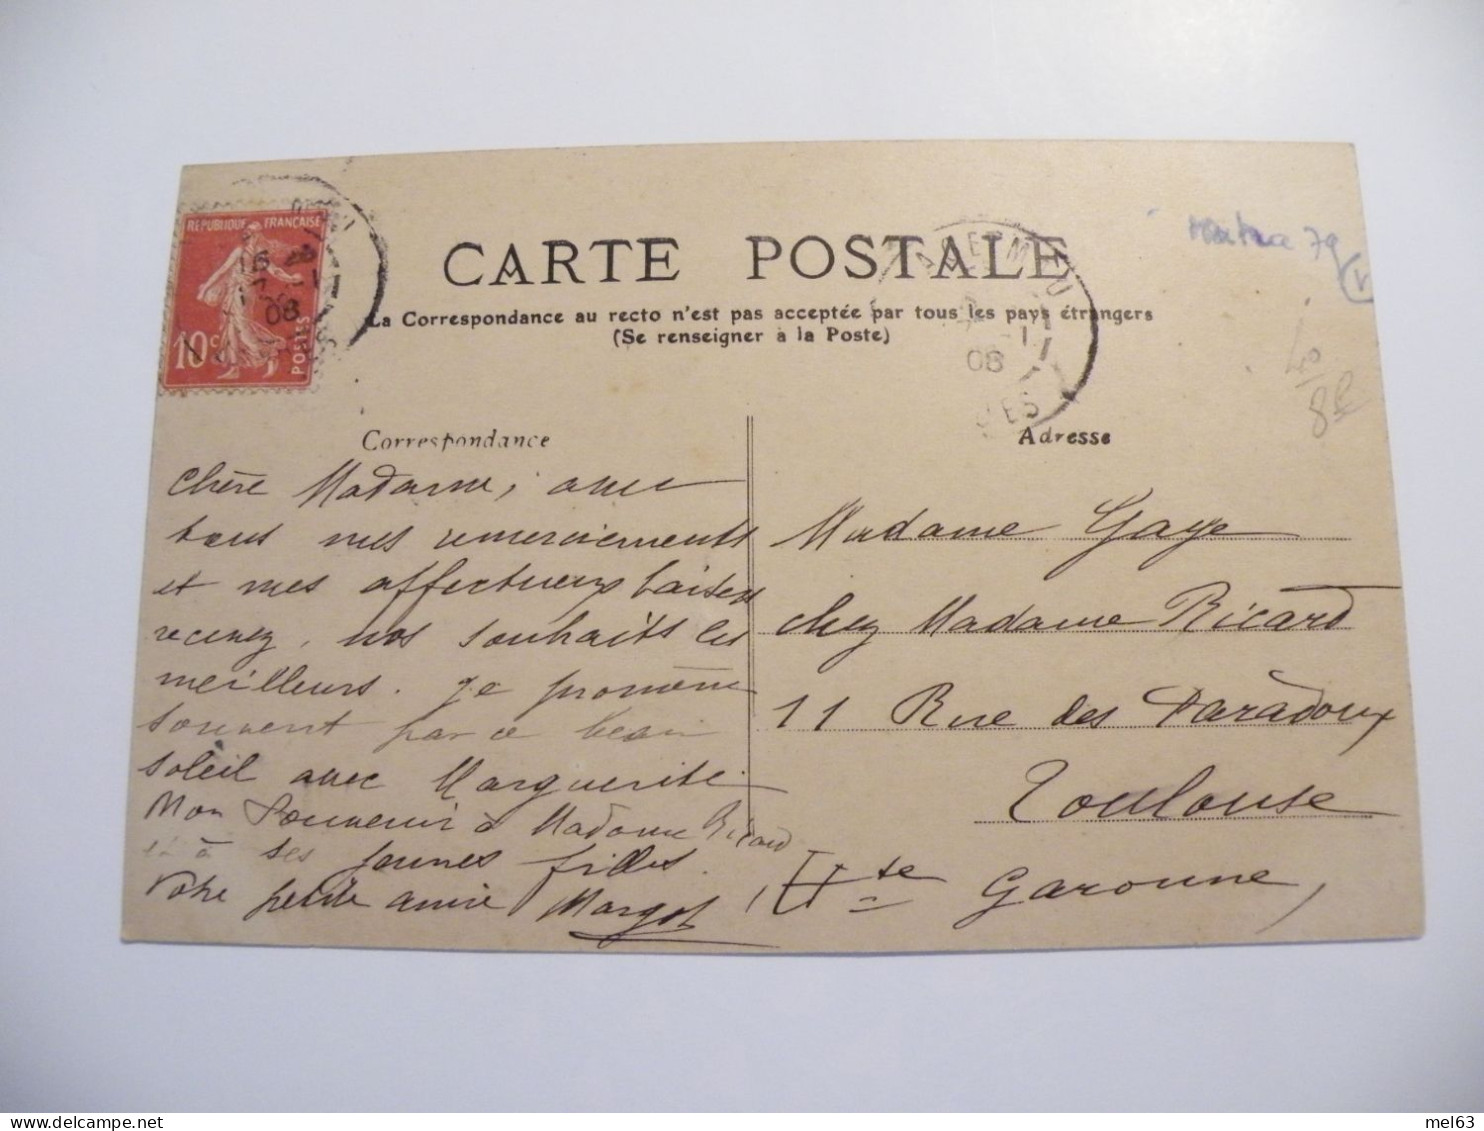 REPUBLIQUE FRANÇAISE
10c
POSTES
16
7 - 1
08
CARTE POSTALE
La Correspondance au recto n'est pas acceptée par tous les pays étrangers
(Se renseigner à la Poste)
7 - 1
08
79
40
8
Correspondance
Chère Madame, avec
tous mes remerciements
et mes affectueux baisers
recevez, nos souhaits les
meilleurs. Je promène
souvent par ce beau
soleil avec Marguerite.
Mon Souvenir à Madame Ricard
et à ses jeunes filles.
Votre petite amie Margot
Adresse
Madame Gaye
chez Madame Ricard
11 Rue des Paradoux
Toulouse
Hte Garonne,
mel63